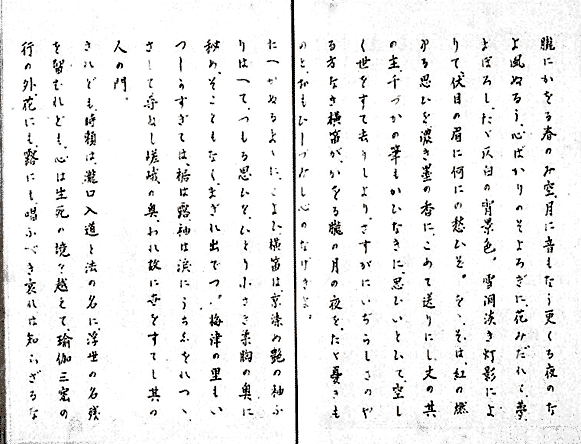 朧にかをる春のみ空、月に音もなう更くる夜のな
よ風ぬるう、心ばかりのそよろぎに、花みだれて夢
よぼろし、たゞ仄白の宵景色。雪洞淡き灯影によ
りて、伏目の眉に何にの愁ひぞ。をゝそは、紅の燃
ゆる思ひを濃き墨の香に、こめて送りにし文の其
の主、千づかの筆もかひなきに、思ひいとひて、空し
く世をすて去りしより、さすがにいぢらしさのや
る方なき横笛が、かをる朧の月の夜を、たゞ憂きも
のと、おもひしづみし心のなげきよ。
たへかぬるよゝに、こよひ横笛は、京染め艶の袖ふ
りはへて、つもる思ひを、ひとり小さき柔胸の奥に
秘め、そこともなくまぎれ出でつ。梅津の里もい
つしかすぎては、裾は露、袖は涙にうちしをれつゝ、
さして尋ねし嵯峨の奥、われ故に世をすてし其の
人の門。
されども、時頼は、瀧口入道と法の名に、浮世の名残
を留むれども、心は生死の境を越えて、瑜伽三密の
行の外、花にも露にも唱ふべき哀れは知らざるな